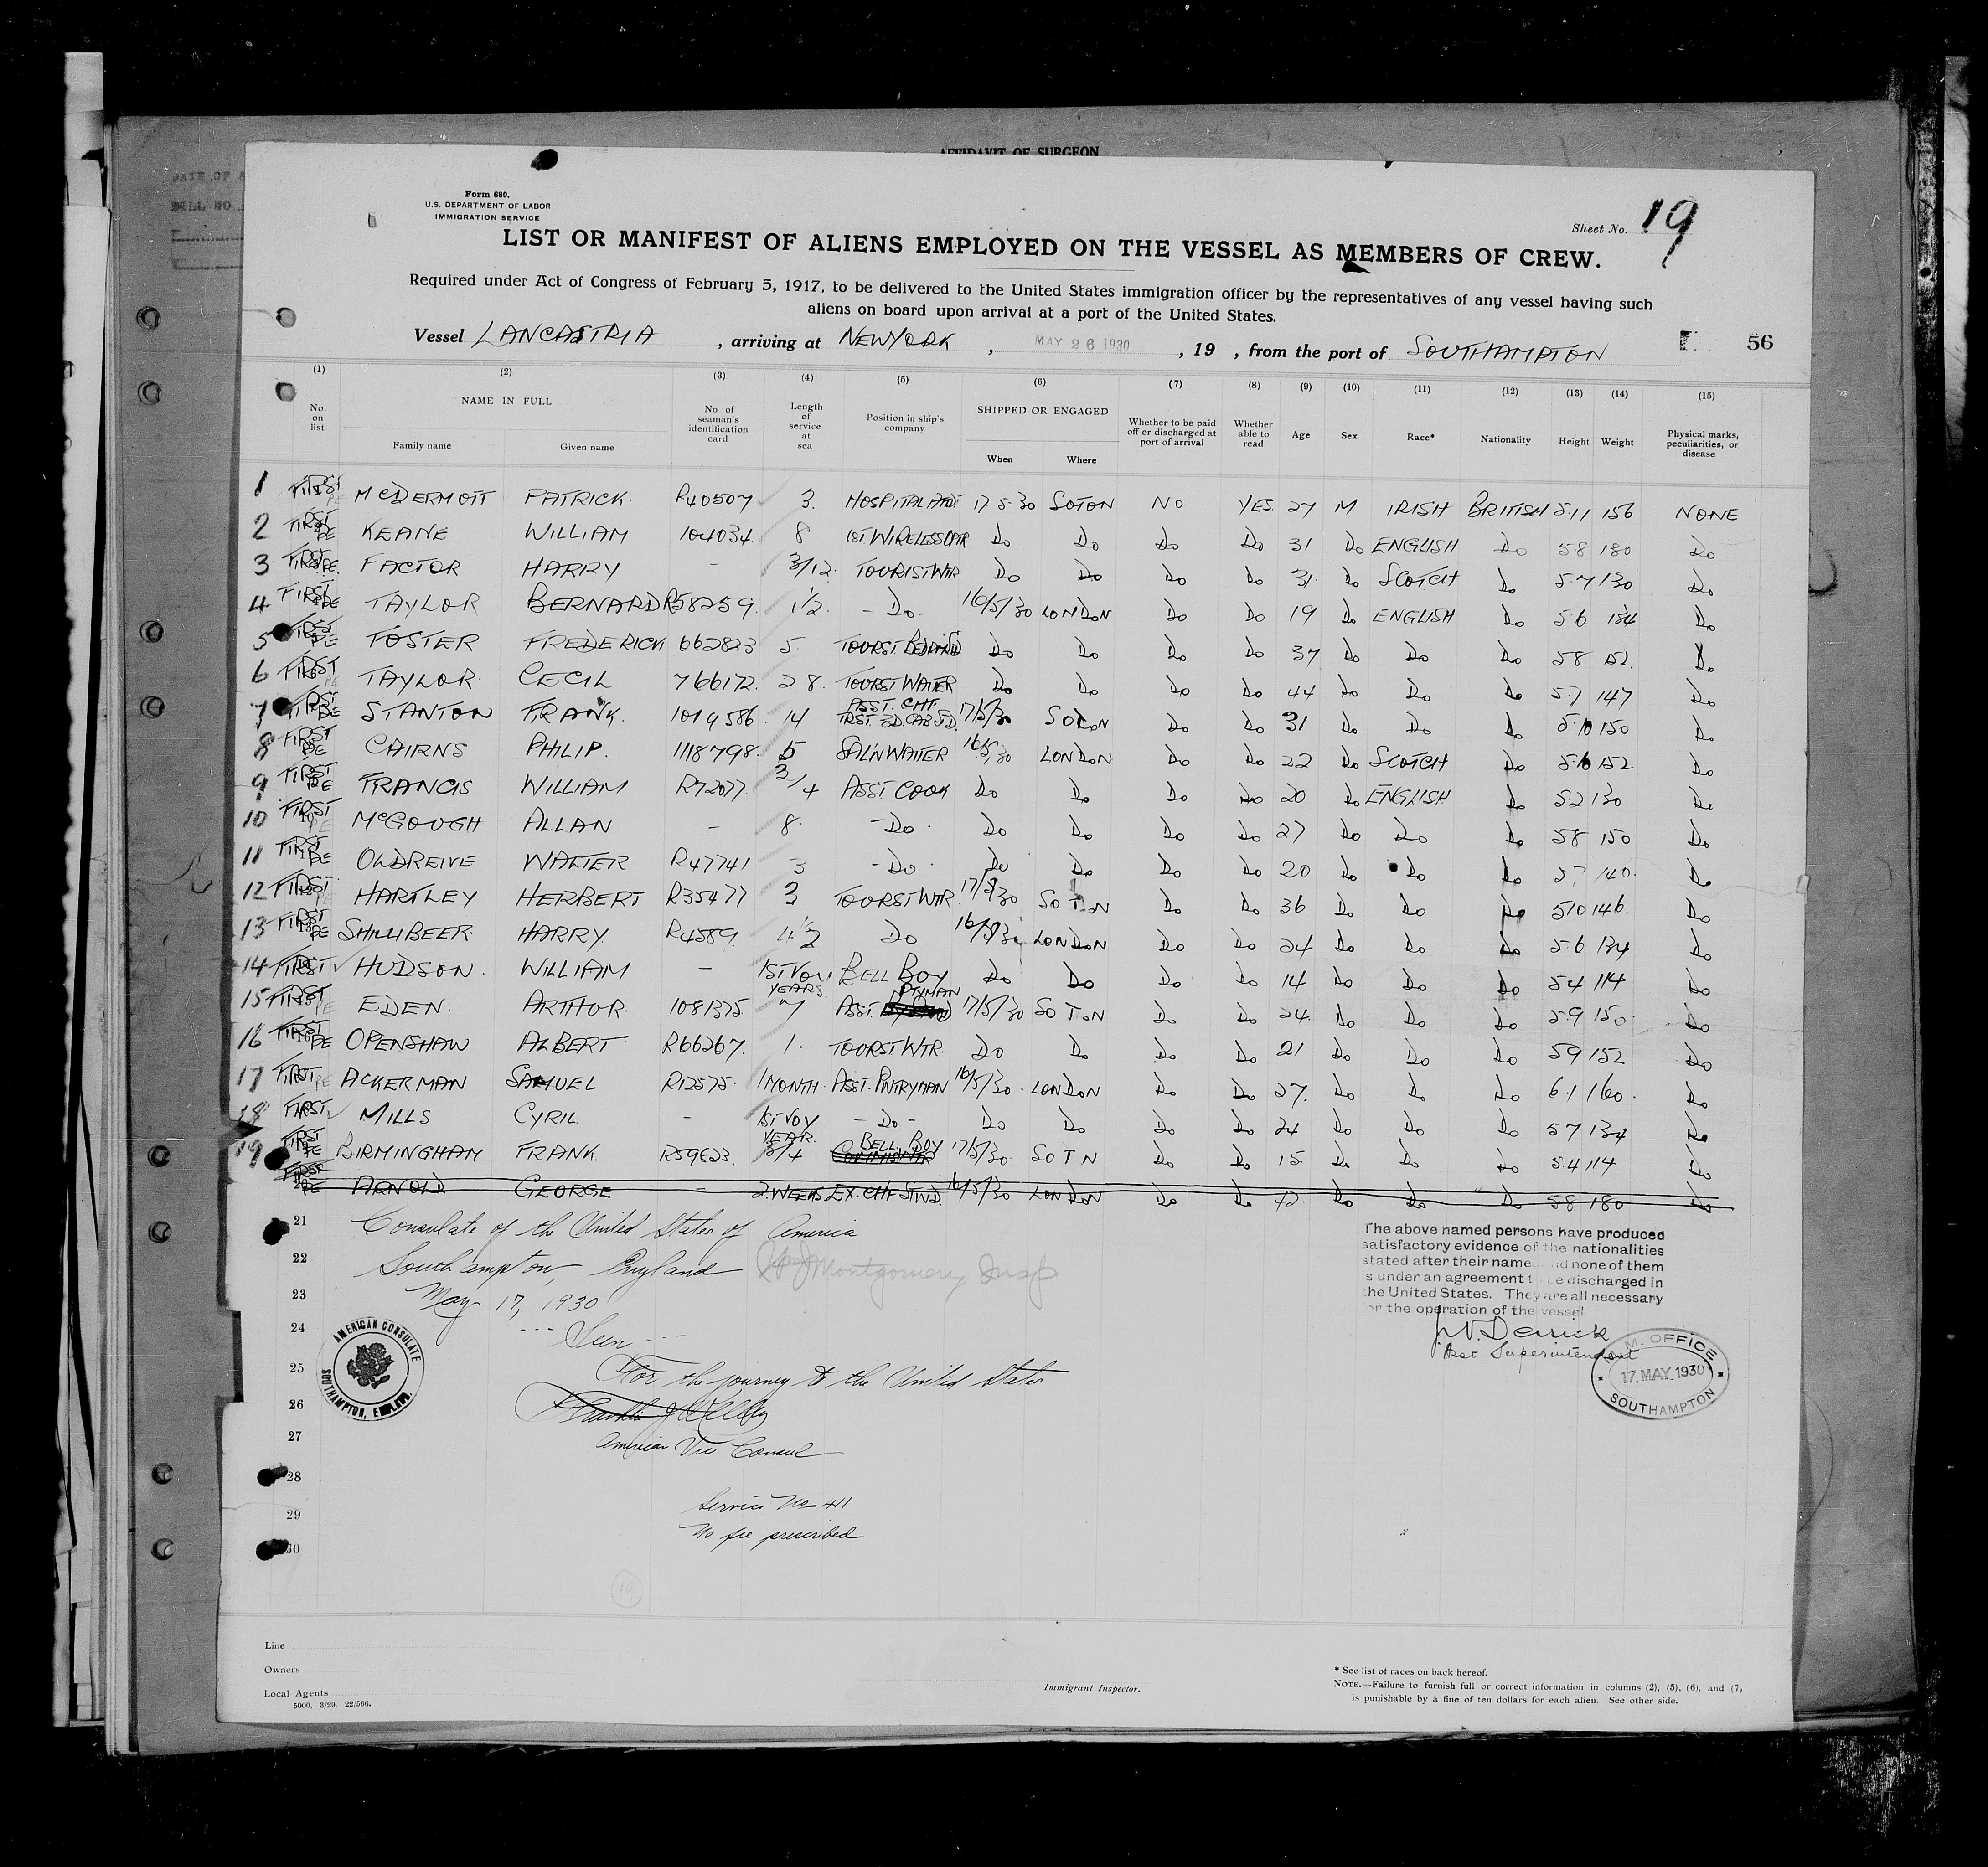 AFFIDAVIT OF SURGEON
Form 680.
U.S. DEPARTMENT OF LABOR
IMMIGRATION SERVICE
Sheet No. 19
LIST OR MANIFEST OF ALIENS EMPLOYED ON THE VESSEL AS MEMBERS OF CREW.
Required under Act of Congress of February 5, 1917, to be delivered to the United States immigration officer by the representatives of any vessel having such
aliens on board upon arrival at a port of the United States.
Vessel LANCASTRIA , arriving at NEW YORK , MAY 26 1930 , 19 , from the port of SOUTHAMPTON 56
(1) (2) (3) (4) (5) (6) (7) (8) (9) (10) (11) (12) (13) (14) (15)
No. on list NAME IN FULL Family name Given name No of seaman's identification card Length of service at sea Position in ship's company SHIPPED OR ENGAGED When Where Whether to be paid off or discharged at port of arrival Whether able to read Age Sex Race* Nationality Height Weight Physical marks, peculiarities, or disease
1 FIRST McDERMOTT PATRICK R40507 3. HOSPITAL ATDT 17 5 30 SOTON NO YES 27 M IRISH BRITISH 5.11 156 NONE
2 FIRST KEANE WILLIAM 104034 8 1ST. WIRELESS OPTR Do Do Do Do 31 Do ENGLISH Do 5 8 180 Do
3 FIRST FACTOR HARRY - 3/12 TOURIST WTR Do Do Do Do 31 Do SCOTCH Do 5.7 130 Do
4 FIRST TAYLOR BERNARD R58259 1½ - Do 16/5/30 LONDON Do Do 19 Do ENGLISH Do 5 6 134 Do
5 FIRST FOSTER FREDERICK 662823 5 Do Do Do Do 37 Do Do Do 5 8 152 Do
6 FIRST TAYLOR CECIL 766172 28 TOURST WAITER Do Do Do Do 44 Do Do Do 5.7 147 Do
7 FIRST STANTON FRANK 1019586 14 17/5/30 SOTON Do Do 31 Do Do Do 5.10 150 Do
8 FIRST CAIRNS PHILIP. 1118798 5 SAL'N WAITER 16/5/30 LONDON Do Do 22 Do SCOTCH Do 152 Do
9 FIRST FRANCIS WILLIAM R72077 3/4 ASST COOK Do Do Do Do 20 Do ENGLISH Do 5.2 130 Do
10 FIRST McGOUGH ALLAN - 8. - Do - Do Do Do Do 27 Do Do Do 5 8 150 Do
11 FIRST OLDREIVE WALTER R47741 3 - Do Do Do Do Do 20 Do Do Do 140 Do
12 FIRST HARTLEY HERBERT R35477 3 TOURST WTR 17/5/30 SOTON Do Do 36 Do Do Do 5 10 146 Do
13 FIRST SHILLIBEER HARRY R4589 4½ Do 16/5/30 LONDON Do Do 24 Do Do Do 5.6 134 Do
14 FIRST HUDSON WILLIAM - 1ST VOY BELL BOY Do Do Do Do 14 Do Do Do 5 4 114 Do
15 FIRST EDEN ARTHUR 1081375 YEARS 7 ASST. PTYMAN 17/5/30 SOTON Do Do 24 Do Do Do 5.9 150 Do
16 FIRST OPENSHAW ALBERT R66267 1. TOURST WTR. Do Do Do Do 21 Do Do Do 5 9 152 Do
17 FIRST ACKERMAN SAMUEL R12575 1 MONTH ASST. PNTRYMAN 16/5/30 LONDON Do Do 27 Do Do Do 6.1 160 Do
18 FIRST MILLS CYRIL - 1ST VOY - Do - Do Do Do Do 24 Do Do Do 5 7 134 Do
19 FIRST BIRMINGHAM FRANK YEAR 3/4 BELL BOY 17/5/30 SOTN Do Do 15 Do Do Do 5.4 114 Do
20 FIRST ARNOLD GEORGE - 2 WEEKS EX. CHF STWD. 16/5/30 LONDON Do Do 42 Do Do Do 5 8 180 Do
21 Consulate of the United States of America
22 Southampton, England Montgomery Insp
23 May 17, 1930
24 --- Seen ---
25 For the journey to the United States
26
27 American Vice Consul
28
29 Service No 411
No fee prescribed
30
AMERICAN CONSULATE SOUTHAMPTON, ENGLAND.
The above named persons have produced
satisfactory evidence of the nationalities
stated after their name and none of them
is under an agreement to be discharged in
the United States. They are all necessary
for the operation of the vessel
J.V. Derrick
Asst Superintendent
M.M. OFFICE 17. MAY. 1930 SOUTHAMPTON
19
Line
Owners
Local Agents
5000. 3/29. 22/566.
Immigrant Inspector.
* See list of races on back hereof.
NOTE.—Failure to furnish full or correct information in columns (2), (5), (6), and (7)
is punishable by a fine of ten dollars for each alien. See other side.